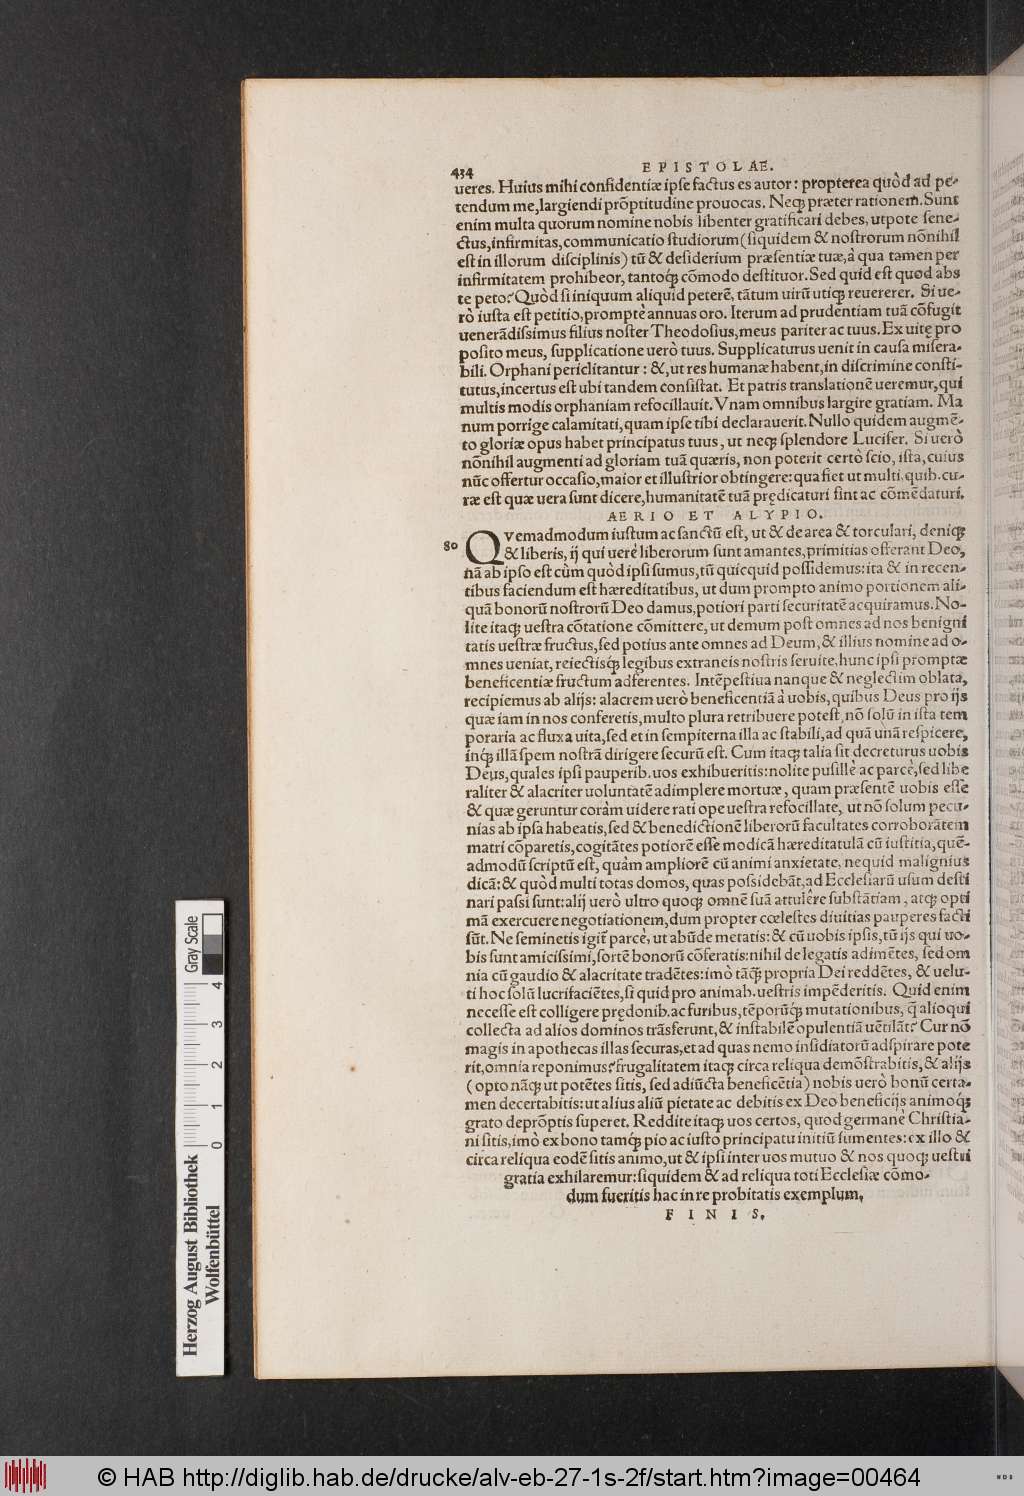 434
EPISTOLAE.
ueres. Huius mihi confidentiæ ipse factus es autor: propterea quòd ad pe-
tendum me, largiendi prõptitudine prouocas. Neq; præter rationem. Sunt
enim multa quorum nomine nobis libenter gratificari debes, utpote sene-
ctus, infirmitas, communicatio studiorum (siquidem & nostrorum nõnihil
est in illorum disciplinis) tũ & desiderium præsentiæ tuæ, à qua tamen per
infirmitatem prohibeor, tantoq́; cõmodo destituor. Sed quid est quod abs
te peto? Quòd si iniquum aliquid peterẽ, tãtum uirũ utiq; reuererer. Si ue-
rò iusta est petitio, promptè annuas oro. Iterum ad prudentiam tuã cõfugit
uenerãdissimus filius noster Theodosius, meus pariter ac tuus. Ex uitę pro
posito meus, supplicatione uerò tuus. Supplicaturus uenit in causa misera-
bili. Orphani periclitantur: &, ut res humanæ habent, in discrimine consti-
tutus, incertus est ubi tandem consistat. Et patris translationẽ ueremur, qui
multis modis orphaniam refocillauit. Vnam omnibus largire gratiam. Ma
num porrige calamitati, quam ipse tibi declarauerit. Nullo quidem augmẽ-
to gloriæ opus habet principatus tuus, ut neq; splendore Lucifer. Si uerò
nõnihil augmenti ad gloriam tuã quæris, non poterit certò scio, ista, cuius
nũc offertur occasio, maior et illustrior obtingere: qua fiet ut multi, quib. cu-
ræ est quæ uera sunt dicere, humanitatẽ tuã prędicaturi sint ac cõmẽdaturi.
AERIO ET ALYPIO.
80 Qvemadmodum iustum ac sanctũ est, ut & de area & torculari, deniq;
& liberis, ij qui uerè liberorum sunt amantes, primitias offerant Deo,
nã ab ipso est cùm quòd ipsi sumus, tũ quicquid possidemus: ita & in recen-
tibus faciendum est hæreditatibus, ut dum prompto animo portionem ali-
quã bonorũ nostrorũ Deo damus, potiori parti securitatẽ acquiramus. No-
lite itaq; uestra cõtatione cõmittere, ut demum post omnes ad nos benigni
tatis uestræ fructus, sed potius ante omnes ad Deum, & illius nomine ad o-
mnes ueniat, reiectisq́; legibus extraneis nostris seruite, hunc ipsi promptæ
beneficentiæ fructum adferentes. Intẽpestiua nanque & neglectim oblata,
recipiemus ab alijs: alacrem uerò beneficentiã à uobis, quibus Deus pro ijs
quæ iam in nos conferetis, multo plura retribuere potest, nõ solũ in ista tem
poraria ac fluxa uita, sed et in sempiterna illa ac stabili, ad quã unã respicere,
inq́; illã spem nostrã dirigere securũ est. Cum itaq; talia sit decreturus uobis
Deus, quales ipsi pauperib. uos exhibueritis: nolite pusillè ac parcè, sed libe
raliter & alacriter uoluntatẽ adimplere mortuæ, quam præsentẽ uobis esse
& quæ geruntur coràm uidere rati ope uestra refocillate, ut nõ solum pecu-
nias ab ipsa habeatis, sed & benedictionẽ liberorũ facultates corroborãtem
matri cõparetis, cogitãtes potiorẽ esse modicã hæreditatulã cũ iustitia, quẽ-
admodũ scriptũ est, quàm ampliorẽ cũ animi anxietate, nequid malignius
dicã: & quòd multi totas domos, quas possidebãt, ad Ecclesiarũ usum desti
nari passi sunt: alij uerò ultro quoq; omnẽ suã attulêre substãtiam, atq; opti
mã exercuere negotiationem, dum propter cœlestes diuitias pauperes facti
sũt. Ne seminetis igit̃ parcè, ut abũde metatis: & cũ uobis ipsis, tũ ijs qui uo-
bis sunt amicissimi, sortẽ bonorũ cõferatis: nihil de legatis adimẽtes, sed om
nia cũ gaudio & alacritate tradẽtes: imò tãq́; propria Dei reddẽtes, & uelu-
ti hoc solũ lucrifaciẽtes, si quid pro animab. uestris impẽderitis. Quid enim
necesse est colligere prędonib. ac furibus, tẽporũq́; mutationibus, q̃ alioqui
collecta ad alios dominos trãsferunt, & instabilẽ opulentiã uẽtilãt? Cur nõ
magis in apothecas illas securas, et ad quas nemo insidiatorũ adspirare pote
rit, omnia reponimus? frugalitatem itaq; circa reliqua demõstrabitis, & alijs
(opto nãq; ut potẽtes sitis, sed adiũcta beneficẽtia) nobis uerò bonũ certa-
men decertabitis: ut alius aliũ pietate ac debitis ex Deo beneficijs animoq́;
grato deprõptis superet. Reddite itaq; uos certos, quod germanè Christia-
ni sitis, imò ex bono tamq́; pio ac iusto principatu initiũ sumentes: ex illo &
circa reliqua eodẽ sitis animo, ut & ipsi inter uos mutuo & nos quoq; uestri
gratia exhilaremur: siquidem & ad reliqua toti Ecclesiæ cõmo-
dum fueritis hac in re probitatis exemplum.
FINIS.
Gray Scale
0 1 2 3 4
Herzog August Bibliothek
Wolfenbüttel
© HAB http://diglib.hab.de/drucke/alv-eb-27-1s-2f/start.htm?image=00464